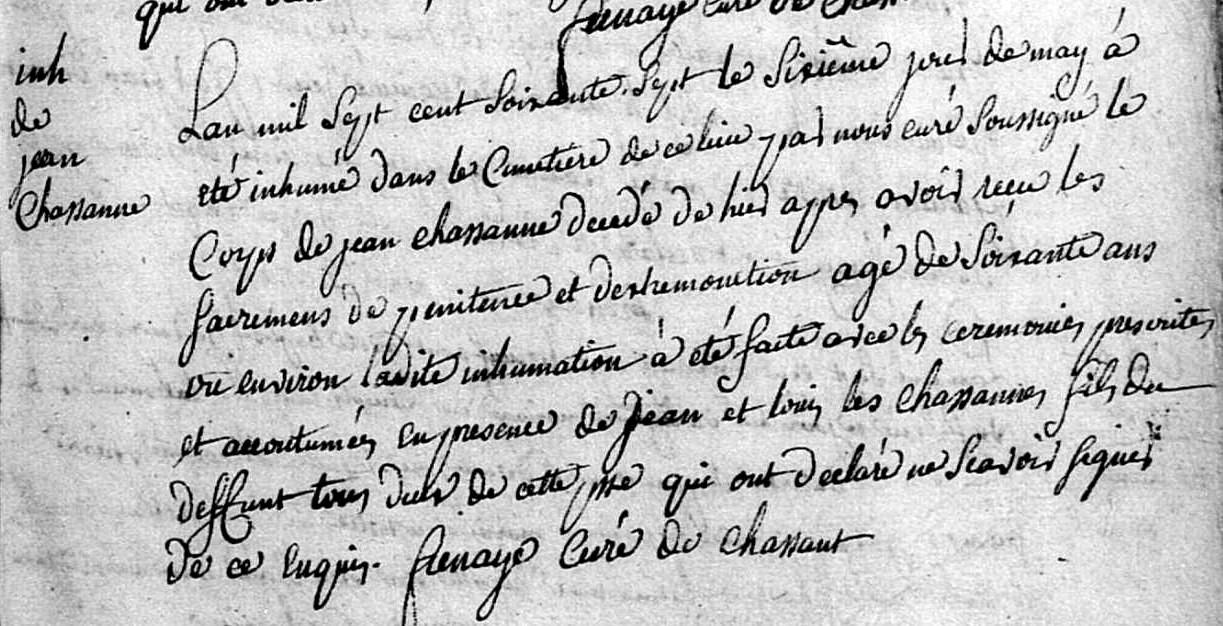 qui ont
curé de Chass
inh
de
jean
Chassanne
Lan mil sept cent soixante sept le sixième jour de may à
eté inhumé dans le Cimetière de ce lieu par nous curé soussigné le
Corps de jean chassanne decedé de hier apres avoir reçu les
sacremens de penitence et dextremonction agé de soixante ans
ou environ ladite inhumation à eté faite avec les ceremonies prescrites
et accoutumées en presence de jean et louis les chassannes fils du
deffunt tous deux de cette psse qui ont declaré ne scavoir signer
de ce enquis. curé de chassant